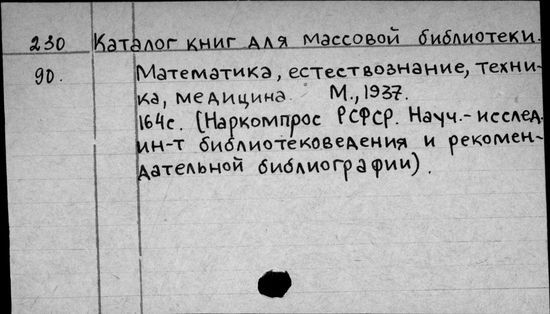 230 Каталог книг для массовой библиотеки.
90. Математика, естествознание, техни-
ка, медицина. М., 1937.
164с. (Наркомпрос РСФСР. Науч.-исслед.
ин-т библиотековедения и рекомен-
дательной библиографии).